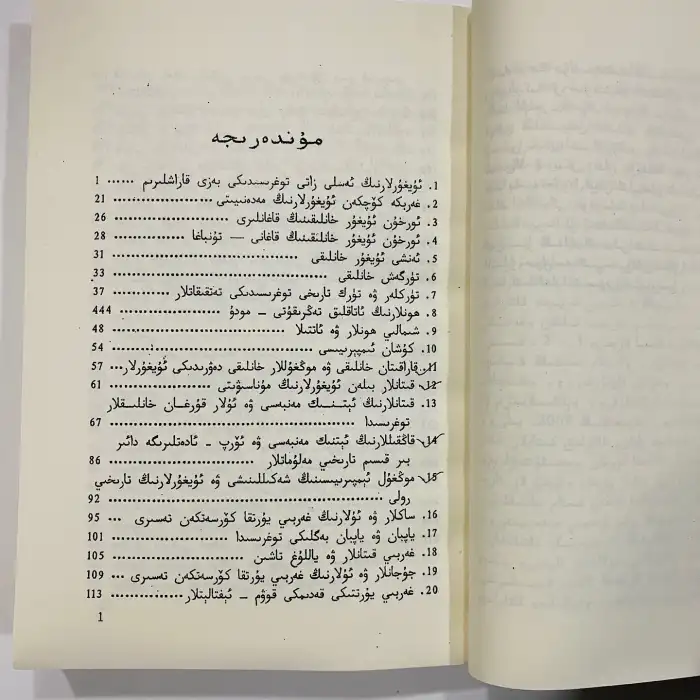 مۇندەرىجە
1. ئۇيغۇرلارنىڭ ئەسلى زاتى توغرىسىدىكى بەزى قاراشلىرىم ...... 1
2. غەربكە كۆچكەن ئۇيغۇرلارنىڭ مەدەنىيىتى ...................... 21
3. ئورخۇن ئۇيغۇر خانلىقىنىڭ قاغانلىرى ...................... 26
4. ئورخۇن ئۇيغۇر خانلىقىنىڭ قاغانى — تۇنباغا .............. 28
5. ئەنشى ئۇيغۇر خانلىقى ...................................... 31
6. تۈرگەش خانلىقى .......................................... 33
7. تۈركلەر ۋە تۈرك تارىخى توغرىسىدىكى تەتقىقاتلار ........ 37
8. ھونلارنىڭ ئاتاقلىق تەڭرىقۇتى - مودۇ .................... 444
9. شىمالىي ھونلار ۋە ئاتتىلا ................................ 48
10. كۇشان ئىمپېرىيىسى ...................................... 54
11. قاراقىتان خانلىقى ۋە موڭغۇللار خانلىقى دەۋرىدىكى ئۇيغۇرلار... 57
12. قىتانلار بىلەن ئۇيغۇرلارنىڭ مۇناسىۋىتى .................. 61
13. قىتانلارنىڭ ئېتىنىڭ مەنبەسى ۋە ئۇلار قۇرغان خانلىقلار
توغرىسىدا .................................................. 67
14. قاڭقىللارنىڭ ئېتنىڭ مەنبەسى ۋە ئۆرپ - ئادەتلىرىگە دائىر
بىر قىسىم تارىخىي مەلۇماتلار .............................. 86
15. موڭغۇل ئىمپېرىيىسىنىڭ شەكىللىنىشى ۋە ئۇيغۇرلارنىڭ تارىخىي
رولى ...................................................... 92
16. ساكلار ۋە ئۇلارنىڭ غەربىي يۇرتقا كۆرسەتكەن تەسىرى ... 95
17. ياپبان ۋە ياپبان بەگلىكى توغرىسىدا ...................... 101
18. غەربىي قىتانلار ۋە ياللۇغ تاشىن ........................ 105
19. جۇجانلار ۋە ئۇلارنىڭ غەربىي يۇرتقا كۆرسەتكەن تەسىرى ... 109
20. غەربىي يۇرتتىكى قەدىمكى قوۋم - ئېفتالىتلار .............. 113
1